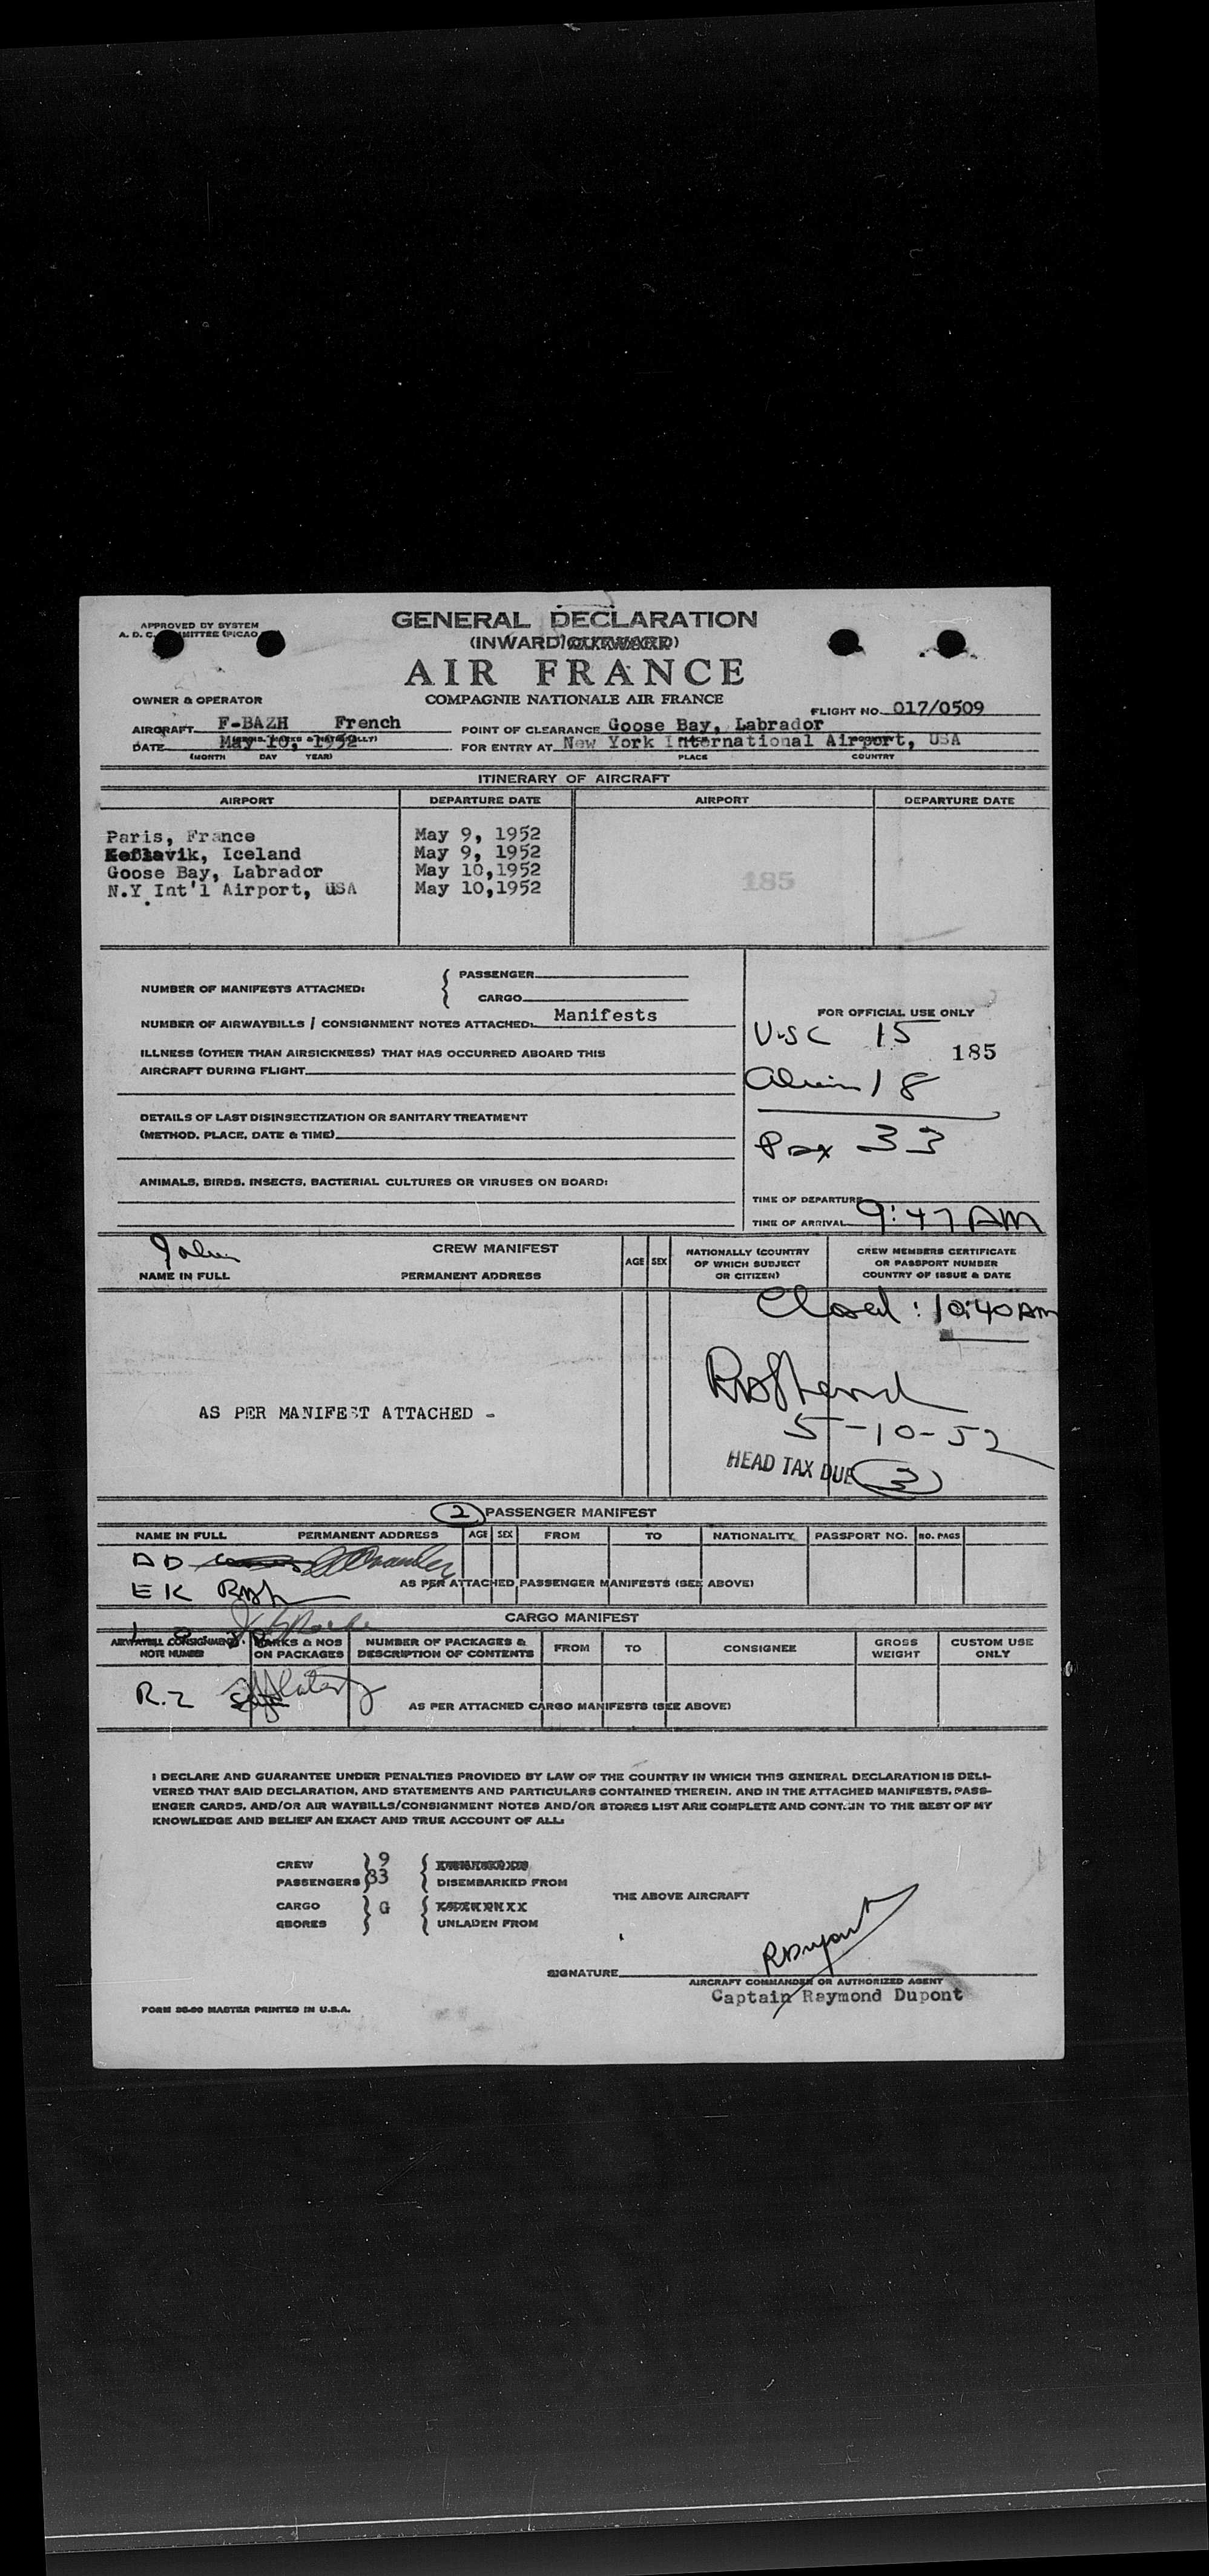 APPROVED BY SYSTEM
GENERAL DECLARATION
(INWARD)
AIR FRANCE
COMPAGNIE NATIONALE AIR FRANCE
OWNER & OPERATOR
FLIGHT NO. 017/0509
AIRCRAFT F-BAZH French
POINT OF CLEARANCE Goose Bay, Labrador
DATE May 10, 1952
FOR ENTRY AT New York International Airport, USA
(MONTH DAY YEAR)
PLACE COUNTRY
ITINERARY OF AIRCRAFT
AIRPORT DEPARTURE DATE AIRPORT DEPARTURE DATE
Paris, France May 9, 1952
Keflavik, Iceland May 9, 1952
Goose Bay, Labrador May 10,1952
185
N.Y. Int'l Airport, USA May 10,1952
NUMBER OF MANIFESTS ATTACHED: { PASSENGER
CARGO
NUMBER OF AIRWAYBILLS / CONSIGNMENT NOTES ATTACHED: Manifests
ILLNESS (OTHER THAN AIRSICKNESS) THAT HAS OCCURRED ABOARD THIS
AIRCRAFT DURING FLIGHT
DETAILS OF LAST DISINSECTIZATION OR SANITARY TREATMENT
(METHOD, PLACE, DATE & TIME)
ANIMALS, BIRDS, INSECTS, BACTERIAL CULTURES OR VIRUSES ON BOARD:
FOR OFFICIAL USE ONLY
USC 15
185
Alien 18
Pax 33
TIME OF DEPARTURE
TIME OF ARRIVAL 9:47 AM
CREW MANIFEST
NAME IN FULL PERMANENT ADDRESS
AGE SEX
NATIONALLY (COUNTRY
OF WHICH SUBJECT
OR CITIZEN)
CREW MEMBERS CERTIFICATE
OR PASSPORT NUMBER
COUNTRY OF ISSUE & DATE
Closed: 10:40 AM
AS PER MANIFEST ATTACHED -
5-10-52
HEAD TAX DUE 2
2 PASSENGER MANIFEST
NAME IN FULL PERMANENT ADDRESS AGE SEX FROM TO NATIONALITY PASSPORT NO. NO. PAGS
DD
EK
AS PER ATTACHED PASSENGER MANIFESTS (SEE ABOVE)
CARGO MANIFEST
AIRWAYBILL CONSIGNMENT
NOTE NUMBER
MARKS & NOS
ON PACKAGES
NUMBER OF PACKAGES &
DESCRIPTION OF CONTENTS
FROM TO CONSIGNEE
GROSS
WEIGHT
CUSTOM USE
ONLY
R.Z
AS PER ATTACHED CARGO MANIFESTS (SEE ABOVE)
I DECLARE AND GUARANTEE UNDER PENALTIES PROVIDED BY LAW OF THE COUNTRY IN WHICH THIS GENERAL DECLARATION IS DELI-
VERED THAT SAID DECLARATION, AND STATEMENTS AND PARTICULARS CONTAINED THEREIN, AND IN THE ATTACHED MANIFESTS, PASS-
ENGER CARDS, AND/OR AIR WAYBILLS/CONSIGNMENT NOTES AND/OR STORES LIST ARE COMPLETE AND CONTAIN TO THE BEST OF MY
KNOWLEDGE AND BELIEF AN EXACT AND TRUE ACCOUNT OF ALL:
CREW 9
PASSENGERS 33 DISEMBARKED FROM
THE ABOVE AIRCRAFT
CARGO G
SBORES UNLADEN FROM
SIGNATURE RDupont
AIRCRAFT COMMANDER OR AUTHORIZED AGENT
Captain Raymond Dupont
FORM 26-90 MASTER PRINTED IN U.S.A.